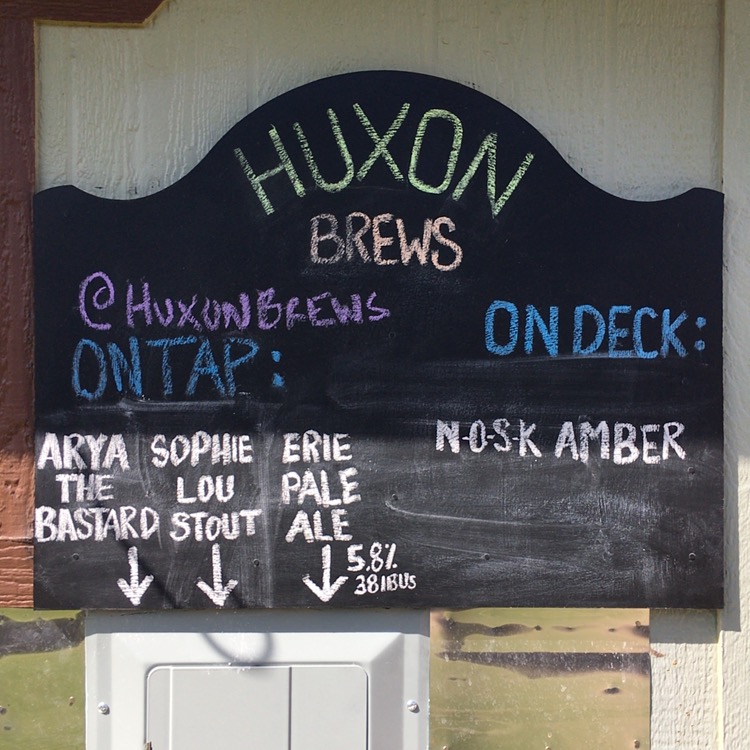 HUXON
BREWS
@HUXONBREWS
ON TAP:
ARYA
THE
BASTARD
SOPHIE
LOU
STOUT
ERIE
PALE
ALE
5.8%
38IBUS
ON DECK:
N-O-S-K AMBER